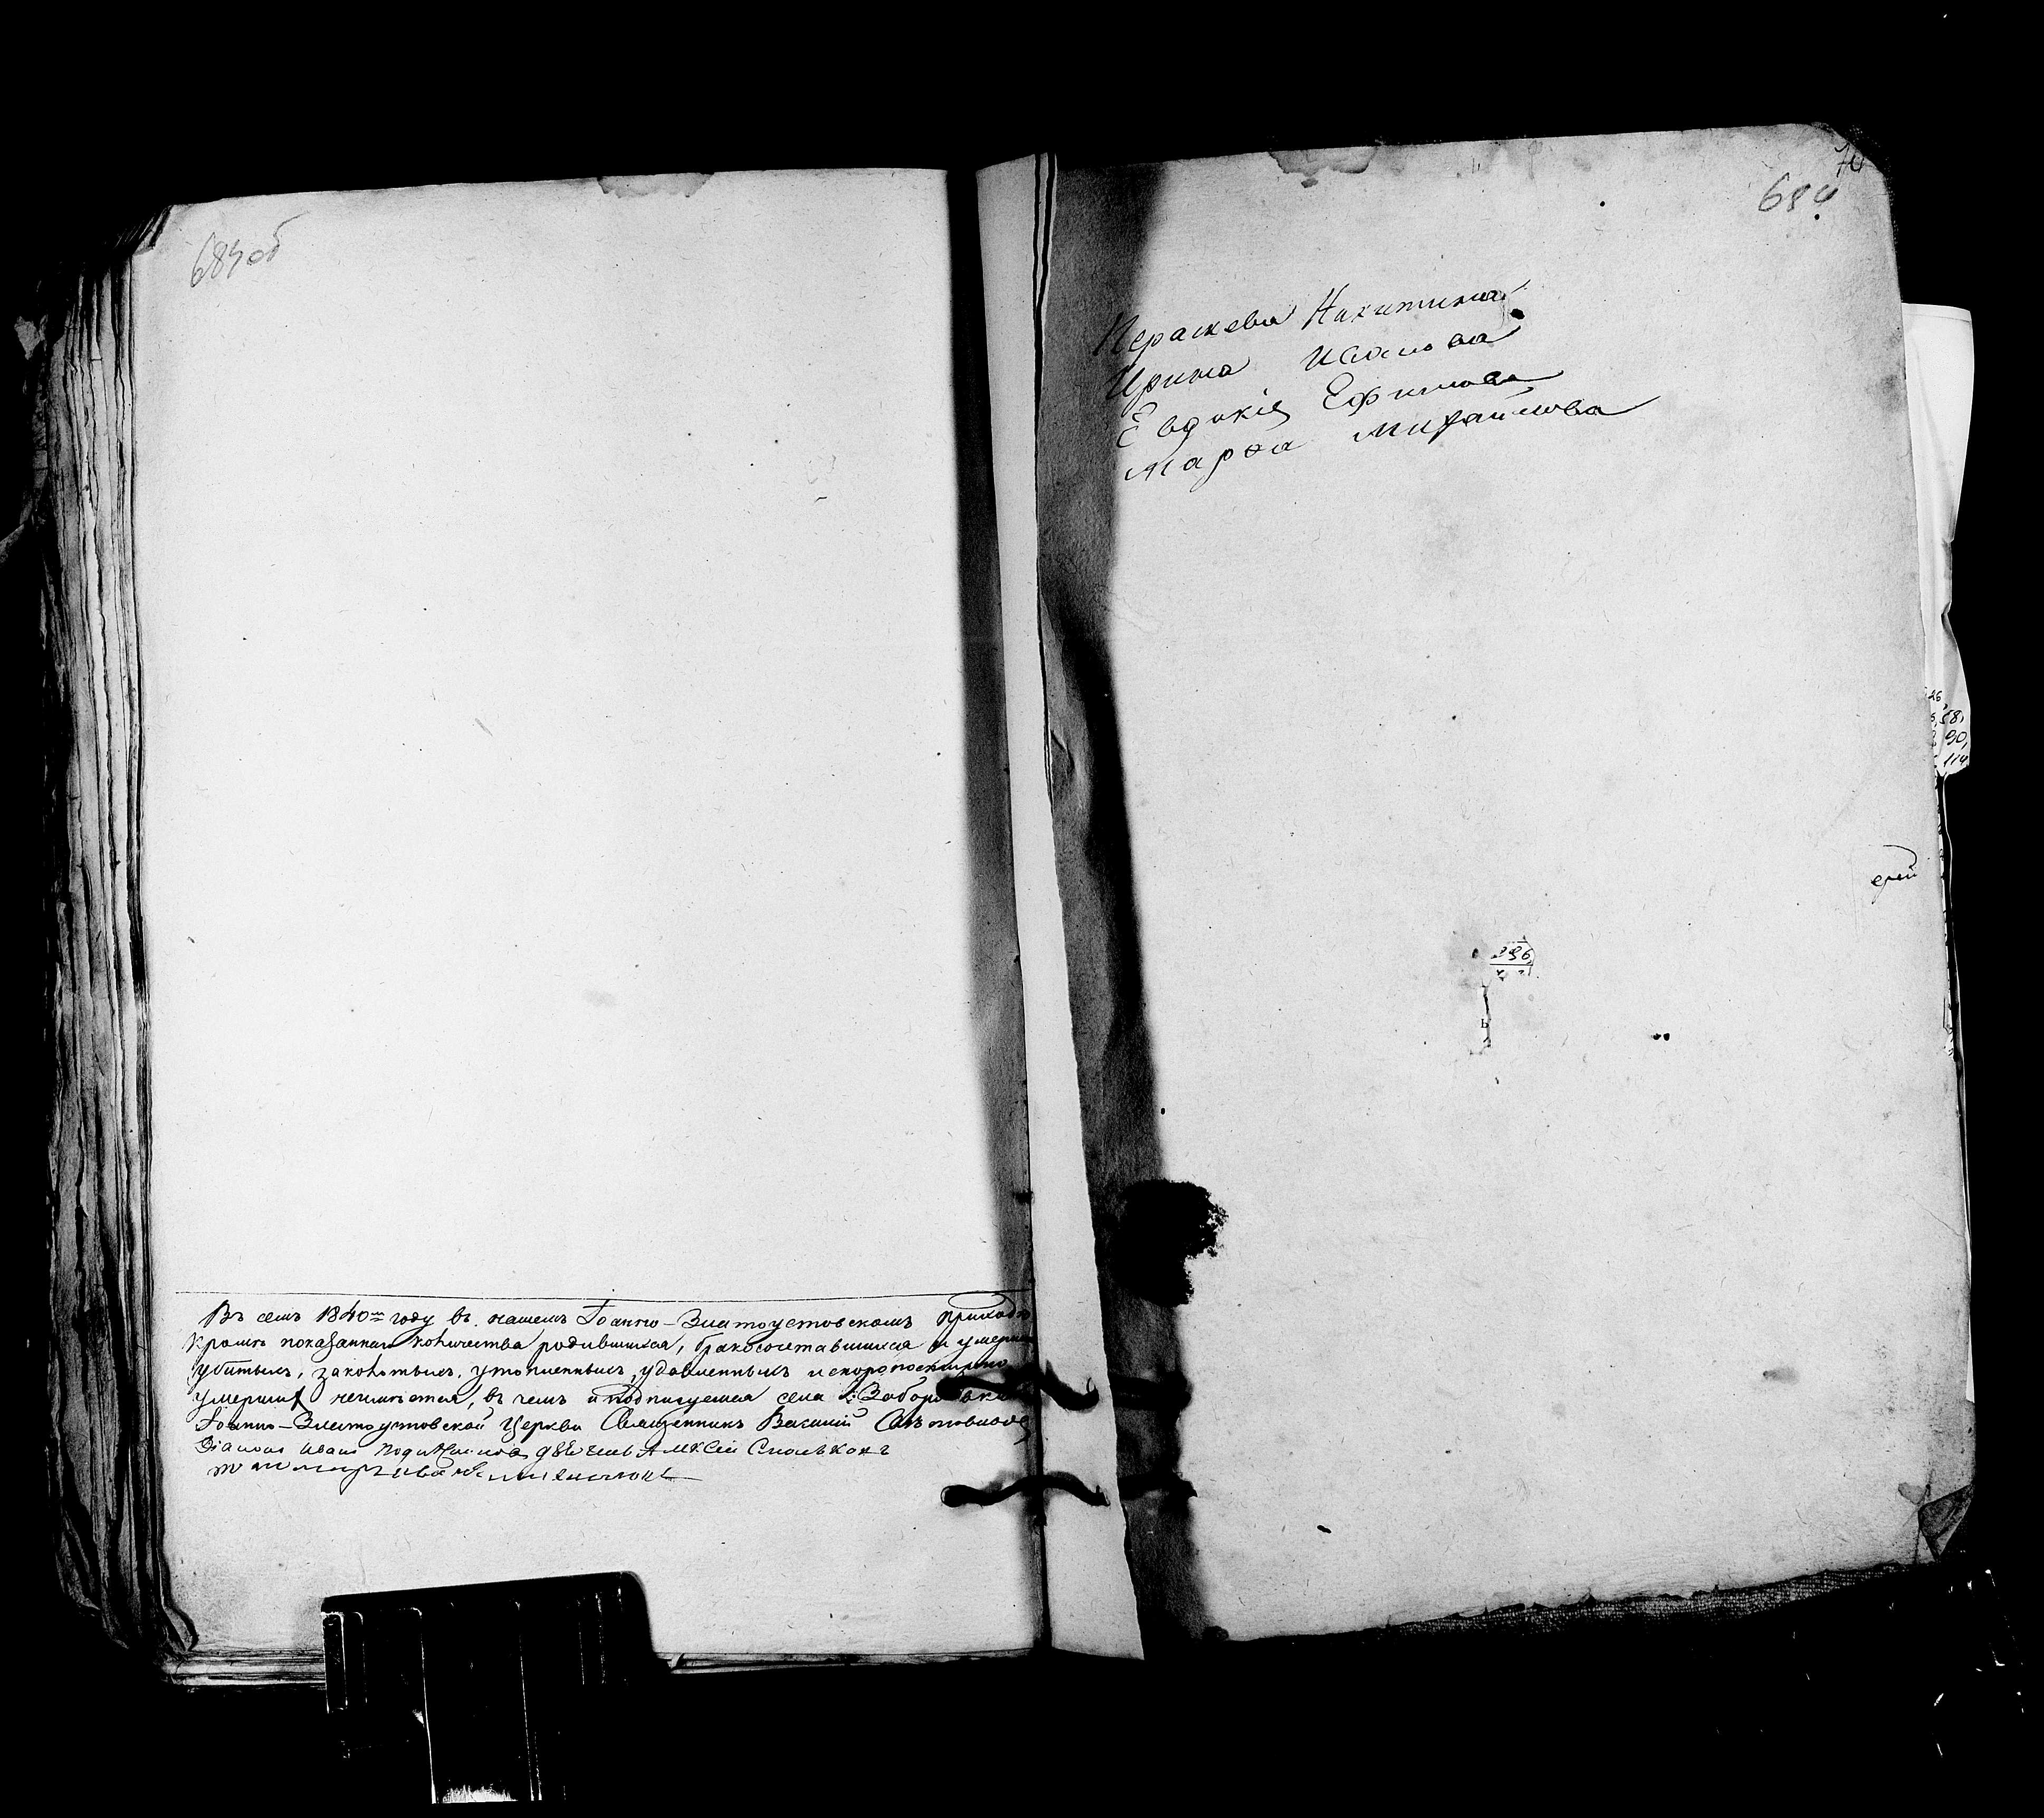 684об
Въ семъ 1840мъ году въ нашемъ Iоанно-Златоустовскомъ приходѣ
кромѣ показаннаго количества родившихся, бракосочетавшихся и умерших
убитыхъ, заколотыхъ, утопленныхъ, удавленныхъ и скоропостижно
умершихъ неимѣется, въ чемъ и подписуемся села Заборовки
Iоанно-Златоустовской Церкви Священникъ Василий
Иванъ Алексей
684
Параскева Никитина
Ирина Иванова
Евдокiя Ефимова
Марѳа Михайлова
58,
90,
114